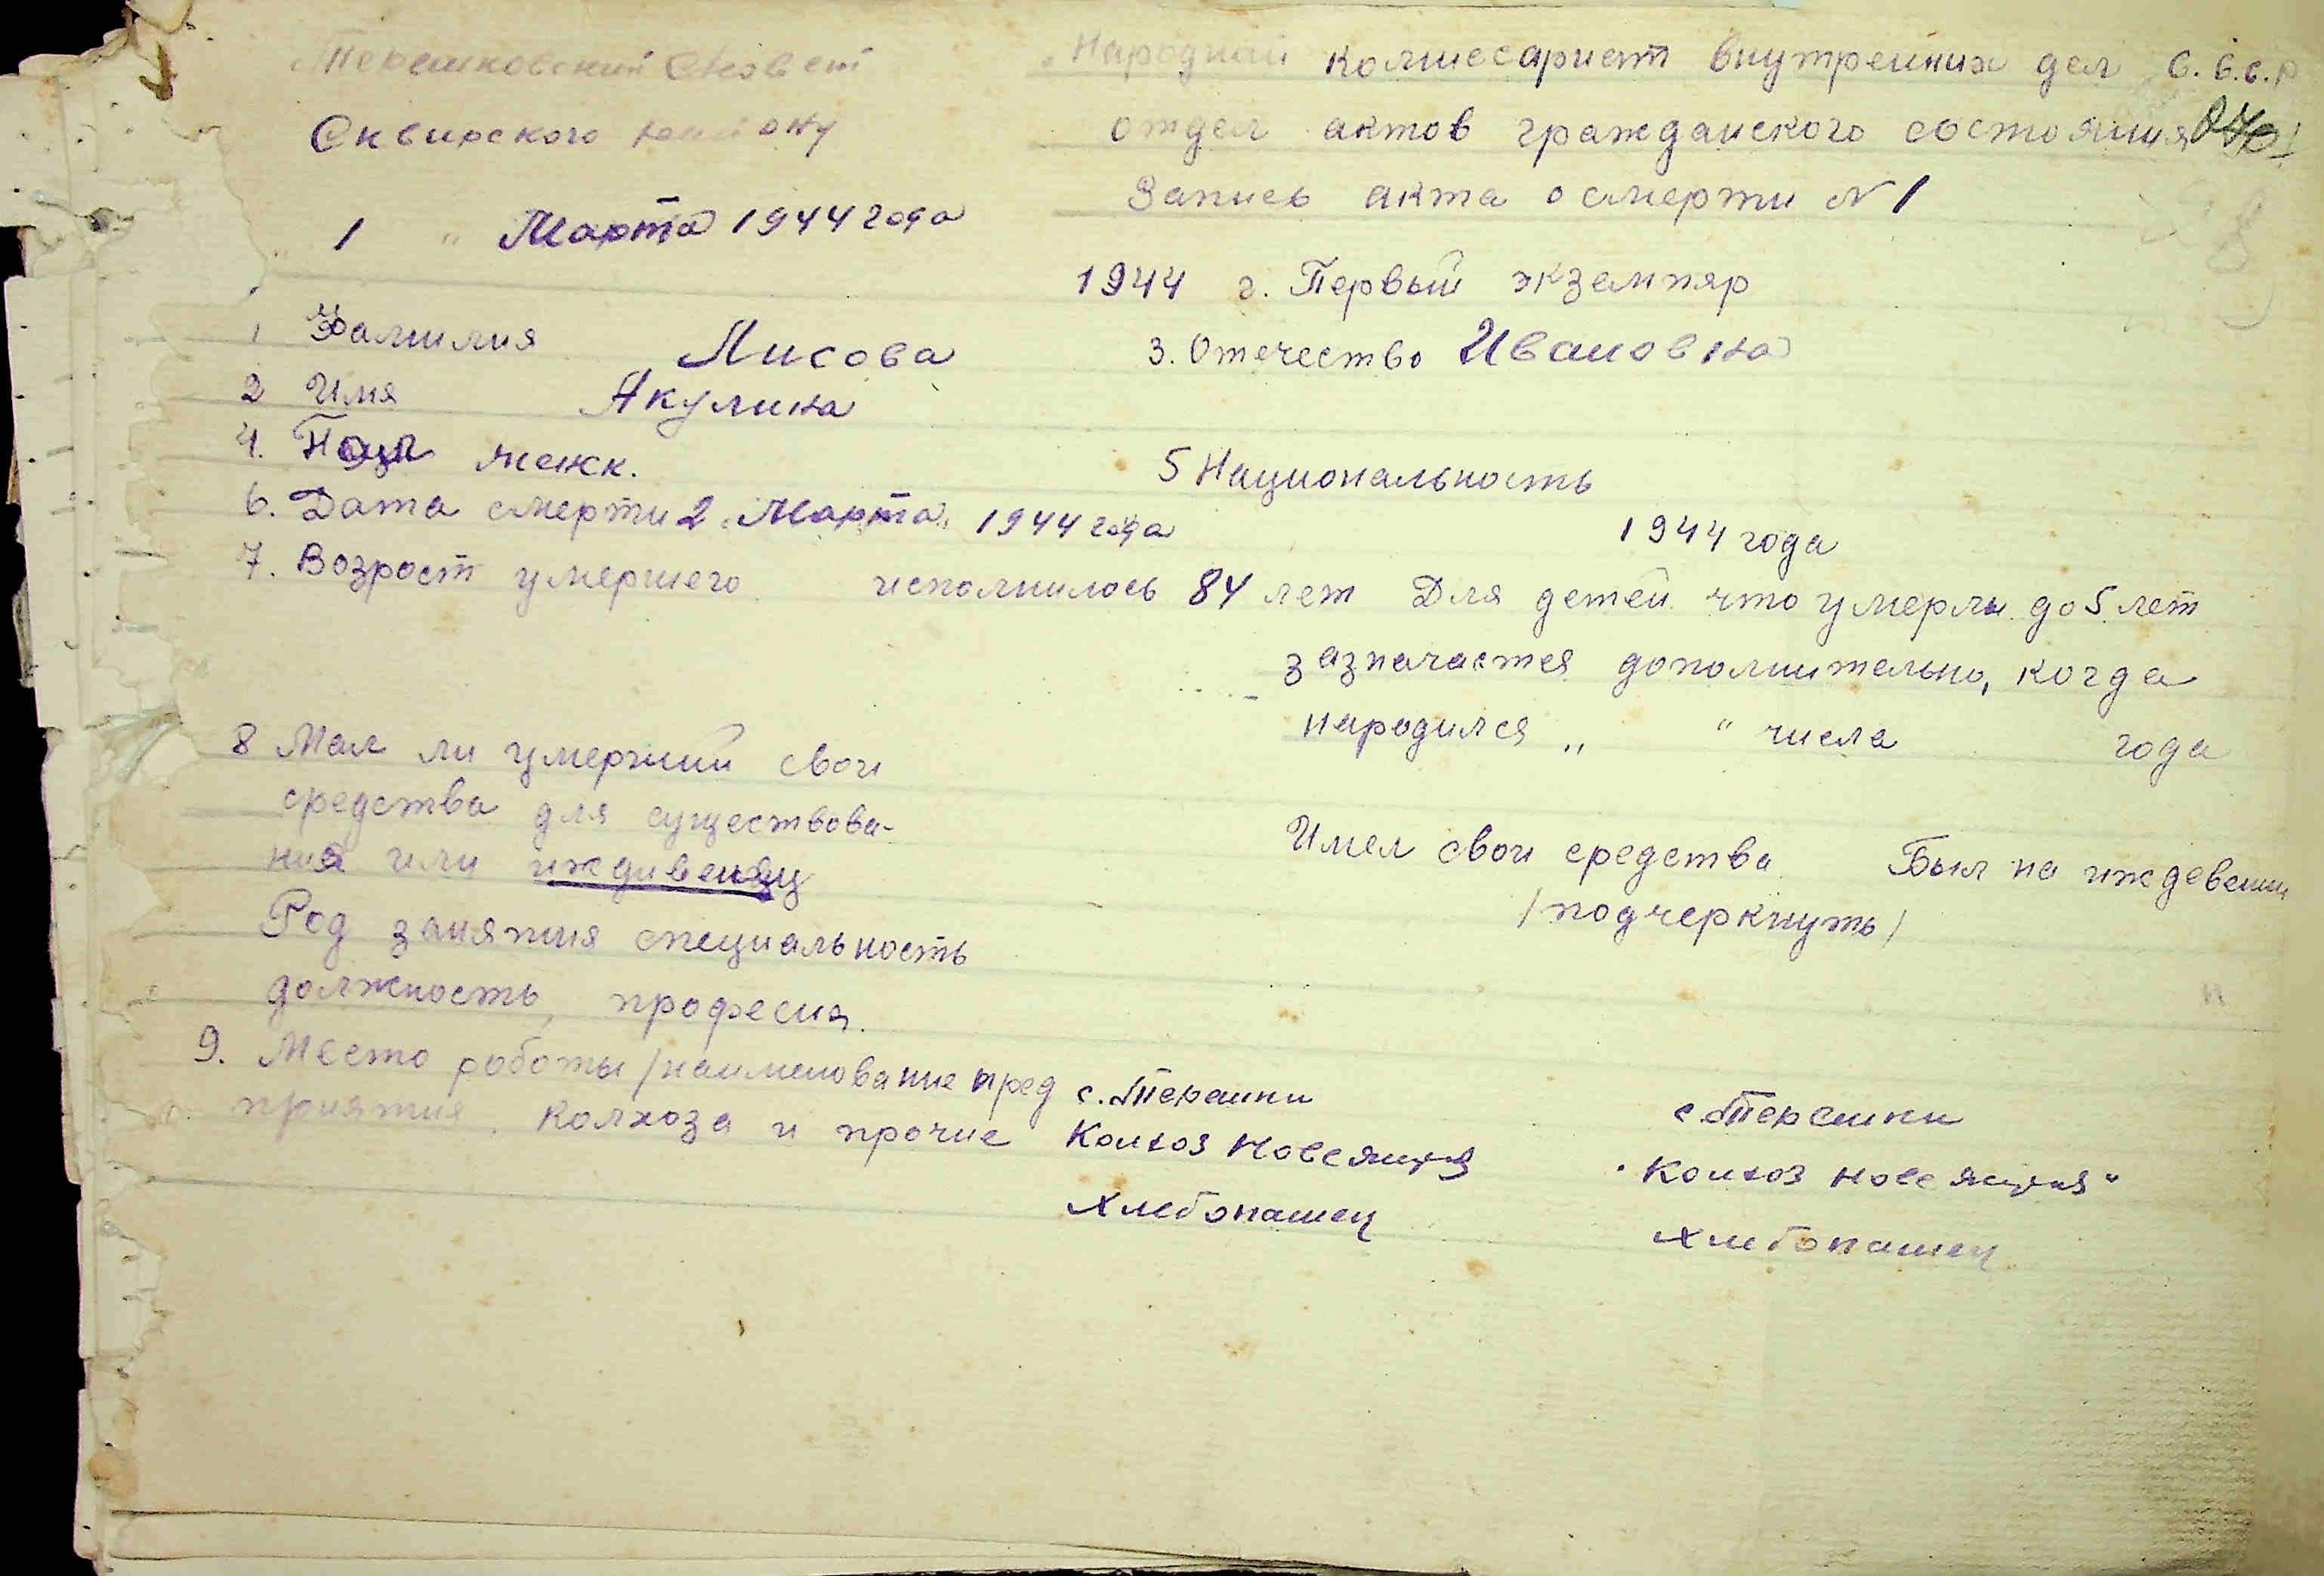 Терешковский Совет
Сквирского району
1 " Марта 1944 года
Народний комиссариат внутрених дел С.С.С.Р
отдел актов гражданского состояния
Запись акта о смерти N 1
1944 г. Первый экземпяр
1 Фамилия Лисова
3. Отечество Ивановна
2 Имя Якулина
4. Пол женк.
5 Национальность
6. Дата смерти 2 "Марта" 1944 года
1944 года
7. Возрост умершего исполнилось 84 лет Для детей что умерли до 5 лет
зазначается дополнительно, когда
народился " " числа года
8 Мал ли умерший свои
средства для существова-
ния или иждивенец
Имел свои средства Был на иждевении
/подчеркнуть/
Род занятия специальность
должность, професия.
9. Место роботы /наименование пред
приятия. Колхоза и прочие
с. Терешки
Колхоз
Хлебопашец
с. Терешки
"Колхоз
Хлебопашец